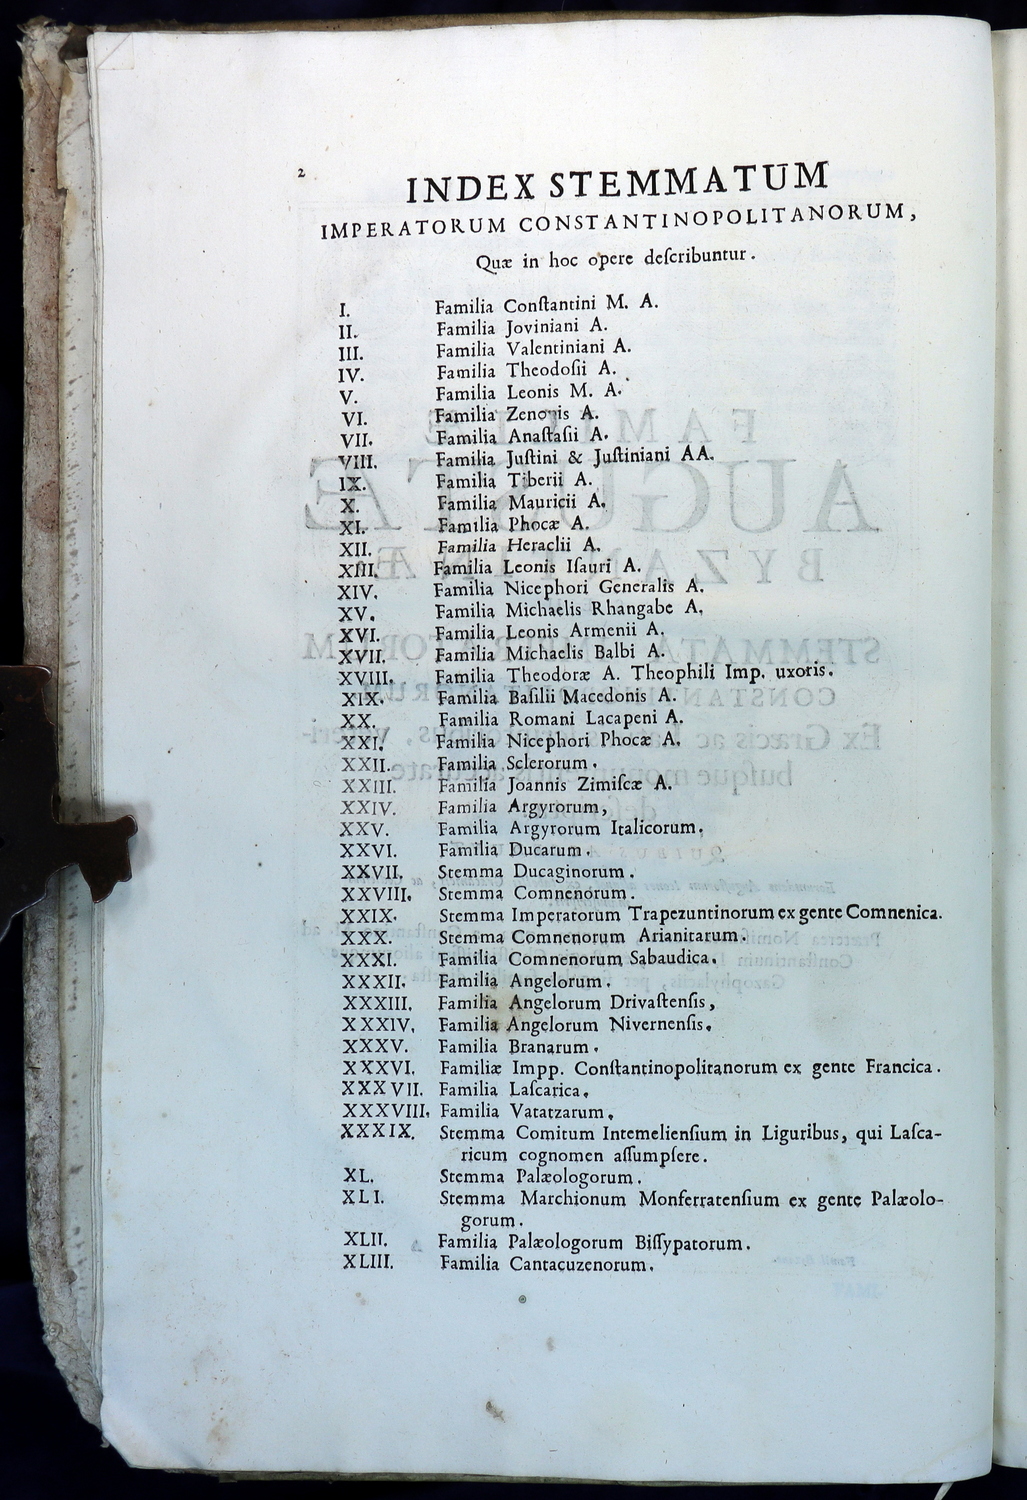 2
INDEX STEMMATUM
IMPERATORUM CONSTANTINOPOLITANORUM,
Quæ in hoc opere deſcribuntur.
I. Familia Conſtantini M. A.
II. Familia Joviniani A.
III. Familia Valentiniani A.
IV. Familia Theodoſii A.
V. Familia Leonis M. A.
VI. Familia Zenonis A.
VII. Familia Anaſtaſii A.
VIII. Familia Juſtini & Juſtiniani AA.
IX. Familia Tiberii A.
X. Familia Mauricii A.
XI. Familia Phocæ A.
XII. Familia Heraclii A.
XIII. Familia Leonis Iſauri A.
XIV. Familia Nicephori Generalis A.
XV. Familia Michaelis Rhangabe A.
XVI. Familia Leonis Armenii A.
XVII. Familia Michaelis Balbi A.
XVIII. Familia Theodoræ A. Theophili Imp. uxoris.
XIX. Familia Baſilii Macedonis A.
XX. Familia Romani Lacapeni A.
XXI. Familia Nicephori Phocæ A.
XXII. Familia Sclerorum.
XXIII. Familia Joannis Zimiſcæ A.
XXIV. Familia Argyrorum,
XXV. Familia Argyrorum Italicorum.
XXVI. Familia Ducarum.
XXVII. Stemma Ducaginorum.
XXVIII. Stemma Comnenorum.
XXIX. Stemma Imperatorum Trapezuntinorum ex gente Comnenica.
XXX. Stemma Comnenorum Arianitarum.
XXXI. Familia Comnenorum Sabaudica.
XXXII. Familia Angelorum.
XXXIII. Familia Angelorum Drivaſtenſis,
XXXIV. Familia Angelorum Nivernenſis.
XXXV. Familia Branarum.
XXXVI. Familiæ Impp. Conſtantinopolitanorum ex gente Francica.
XXXVII. Familia Laſcarica.
XXXVIII. Familia Vatatzarum.
XXXIX. Stemma Comitum Intemelienſium in Liguribus, qui Laſca-
ricum cognomen aſſumpſere.
XL. Stemma Palæologorum.
XLI. Stemma Marchionum Monferratenſium ex gente Palæolo-
gorum.
XLII. Familia Palæologorum Biſſypatorum.
XLIII. Familia Cantacuzenorum.